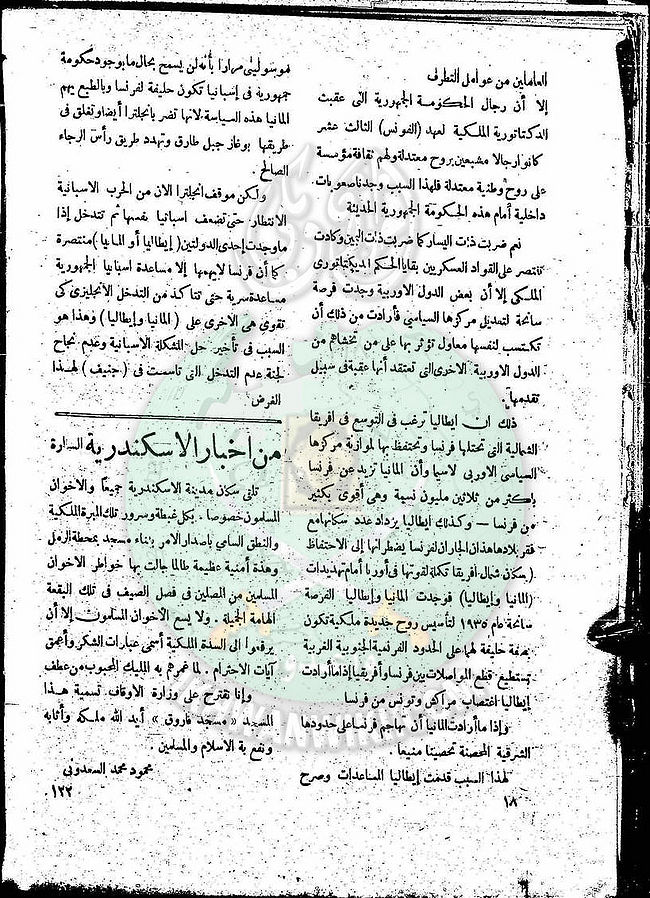 العاملين من عوامل التطرف
إلا أن رجال الحكومة الجمهورية التى عقبت
الدكتاتورية الملكية لعهد (الفونس) الثالث عشر
كانوا رجالا مشبعين بروح معتدلة ولهم ثقافة مؤسسة
على روح وطنية معتدلة فلهذا السبب وجدنا صعوبات
داخلية أمام هذه الحكومة الجمهورية الحديثة
نعم ضربت ذات اليسار كما ضربت ذات اليمين وكادت
تنتصر على القواد العسكريين بقايا الحكم الديكتاتورى
الملكى إلا أن بعض الدول الاوربية وجدت فرصة
سانحة لتعديل مركزها السياسى فأرادت من ذلك أن
تكتسب لنفسها معاول تؤثر بها على من تخشاهم من
الدول الاوربية الاخرى التى تعتقد أنها عقبة فى سبيل
تقدمها
ذلك أن إيطاليا ترغب فى التوسع فى افريقا
الشمالية التى تحتلها فرنسا وتحتفظ بها لموازنة مركزها
السياسى الاوربى لاسيما وأن المانيا تزيد عن فرنسا
باكثر من ثلاثين مليون نسمة وهى أقوى بكثير
من فرنسا — وكذلك إيطاليا يزداد عدد سكانها مع
فقر بلادها هذان الجاران لفرنسا يضطرانها إلى الاحتفاظ
(بسكان شمال افريقا تكملة لقوتها فى أوربا أمام تهديدات
(المانيا وإيطاليا) فوجدت المانيا وإيطاليا الفرصة
سانحة عام ١٩٣٥ لتأسيس روح جديدة ملكية تكون
بصفة حليفة لهما على الحدود الفرنسية الجنوبية الغربية
تستطيع قطع المواصلات بين فرنسا وأفريقيا إذا ما أرادت
إيطاليا اغتصاب مراكش وتونس من فرنسا
وإذا ما أرادت المانيا أن تهاجم فرنسا على حدودها
الشرقية المحصنة تحصينا منيعا.
لهذا السبب قدمت إيطاليا المساعدات وصرح
١٨
موسولينى مرارا بأنه لن يسمح بحال ما بوجود حكومة
جمهورية فى إسبانيا تكون حليفة لفرنسا وبالطبع يهم
المانيا هذه السياسة لانها تضر بانجلترا أيضا وتقلق فى
طريقها بوغاز جبل طارق وتهدد طريق رأس الرجاء
الصالح.
ولكن موقف انجلترا الآن من الحرب الاسبانية
الانتظار حتى تضعف اسبانيا نفسها ثم تتدخل إذا
ما وجدت إحدى الدولتين (إيطاليا أو المانيا) منتصرة
كما أن فرنسا لايهمها إلا مساعدة اسبانيا الجمهورية
مساعدة سرية حتى تتأكد من التدخل الانجليزى كى
تقوى هى الاخرى على (المانيا وإيطاليا) وهذا هو
السبب فى تأخير حل المشكلة الاسبانية وعدم نجاح
لجنة عدم التدخل التى تأسست فى (جنيف) لهذا
الغرض
من أخبار الاسكندرية السارة
تلقى سكان مدينة الاسكندرية جميعا والاخوان
المسلمون خصوصا. بكل غبطة وسرور تلك المبرة الملكية
والنطق السامى باصدار الامر بناء مسجد بمحطة الرمل
وهذه أمنية عظيمة طالما جالت بها خواطر الاخوان
المسلمين من المصلين فى فصل الصيف فى تلك البقعة
الهامة الجميلة. ولا يسع الاخوان المسلمون إلا أن
يرفعوا الى السدة الملكية أسمى عبارات الشكر وأعمق
آيات الاحترام. لما غمرهم به المليك المحبوب من عطف
وإنا نقترح على وزارة الاوقاف تسمية هذا
المسجد «مسجد فاروق» أيد الله ملكه وأثابه
ونفع به الاسلام والمسلمين.
محمود محمد السعدونى
١٢٢